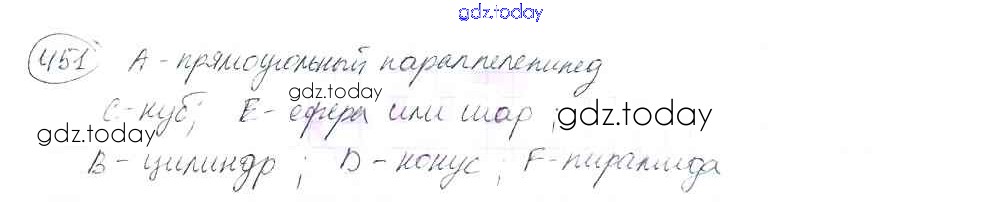 gdz.today
451 А - прямоугольный параллелепипед
gdz.today
С - куб; Е - сфера или шар; gdz.today
gdz.today
В - цилиндр; D - конус; F - пирамида